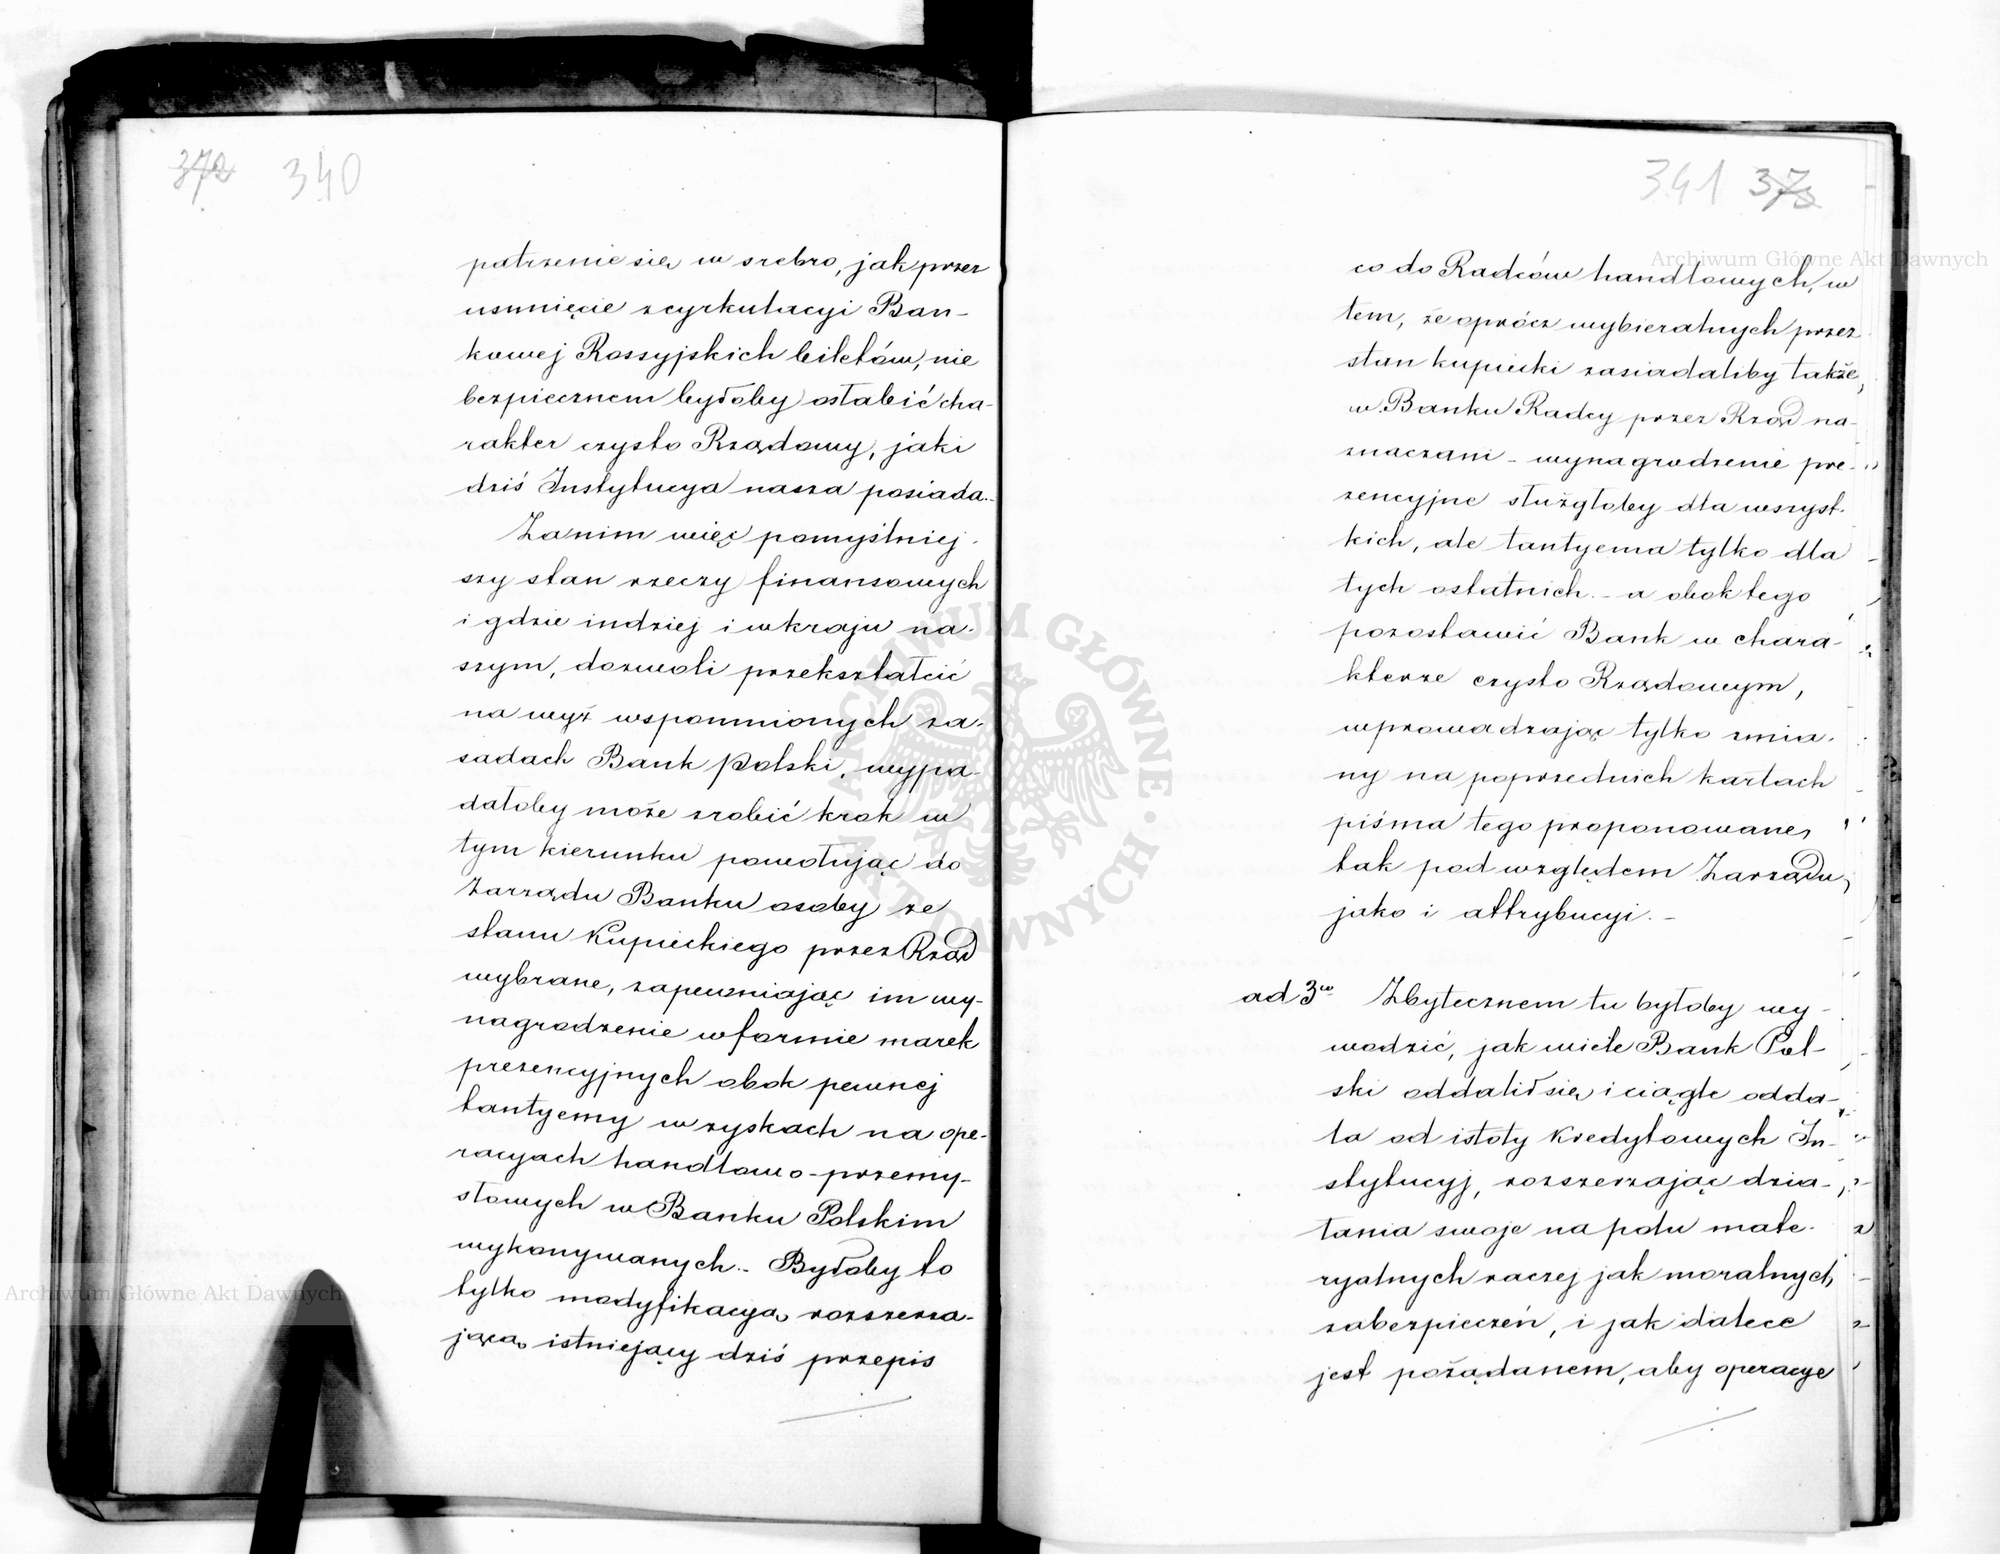 372 340
patrzenie się w srebro, jak przez
usunięcie z cyrkulacyi Ban-
kowej Rossyjskich biletów, nie
bezpiecznem byłoby osłabić cha-
rakter czysto Rządowy, jaki
dziś Instytucya nasza posiada.-
Zanim więc pomyślniej-
szy stan rzeczy finansowych
i gdzie indziej i w kraju na-
szym, dozwoli przekształcić
na wyż wspomnionych za-
sadach Bank Polski, wypa-
dałoby może zrobić krok w
tym kierunku powołując do
Zarządu Banku osoby ze
stanu Kupieckiego przez Rząd
wybrane, zapewniając im wy-
nagrodzenie w formie marek
prezencyjnych obok pewnej
tantyemy w zyskach na ope-
racyach handlowo-przemy-
słowych w Banku Polskim
wykonywanych.- Byłoby to
tylko modyfikacyą rozszerza-
jącą istniejący dziś przepis
341 373
co do Radców handlowych, w
tem, że oprócz wybieralnych przez
stan kupiecki zasiadaliby także
w Banku Radcy przez Rząd na-
znaczani - wynagrodzenie pre-
zencyjne służyłoby dla wszyst-
kich, ale tantyema tylko dla
tych ostatnich.- a obok tego
pozostawić Bank w chara-
kterze czysto Rządowym,
wprowadzając tylko zmia-
ny na poprzednich kartach
pisma tego proponowane,
tak pod względem Zarządu,
jako i attrybucyi.-
ad 3io Zbytecznem tu byłoby wy-
wodzić, jak wiele Bank Pol-
ski oddalił się i ciągle odda-
la od istoty Kredytowych In-
stytucyj, rozszerzając dzia-
łania swoje na polu mate-
ryalnych raczej jak moralnych
zabezpieczeń, i jak dalece
jest pożądanem, aby operacye
Archiwum Główne Akt Dawnych
Archiwum Główne Akt Dawnych
ARCHIWUM GŁÓWNE AKT DAWNYCH